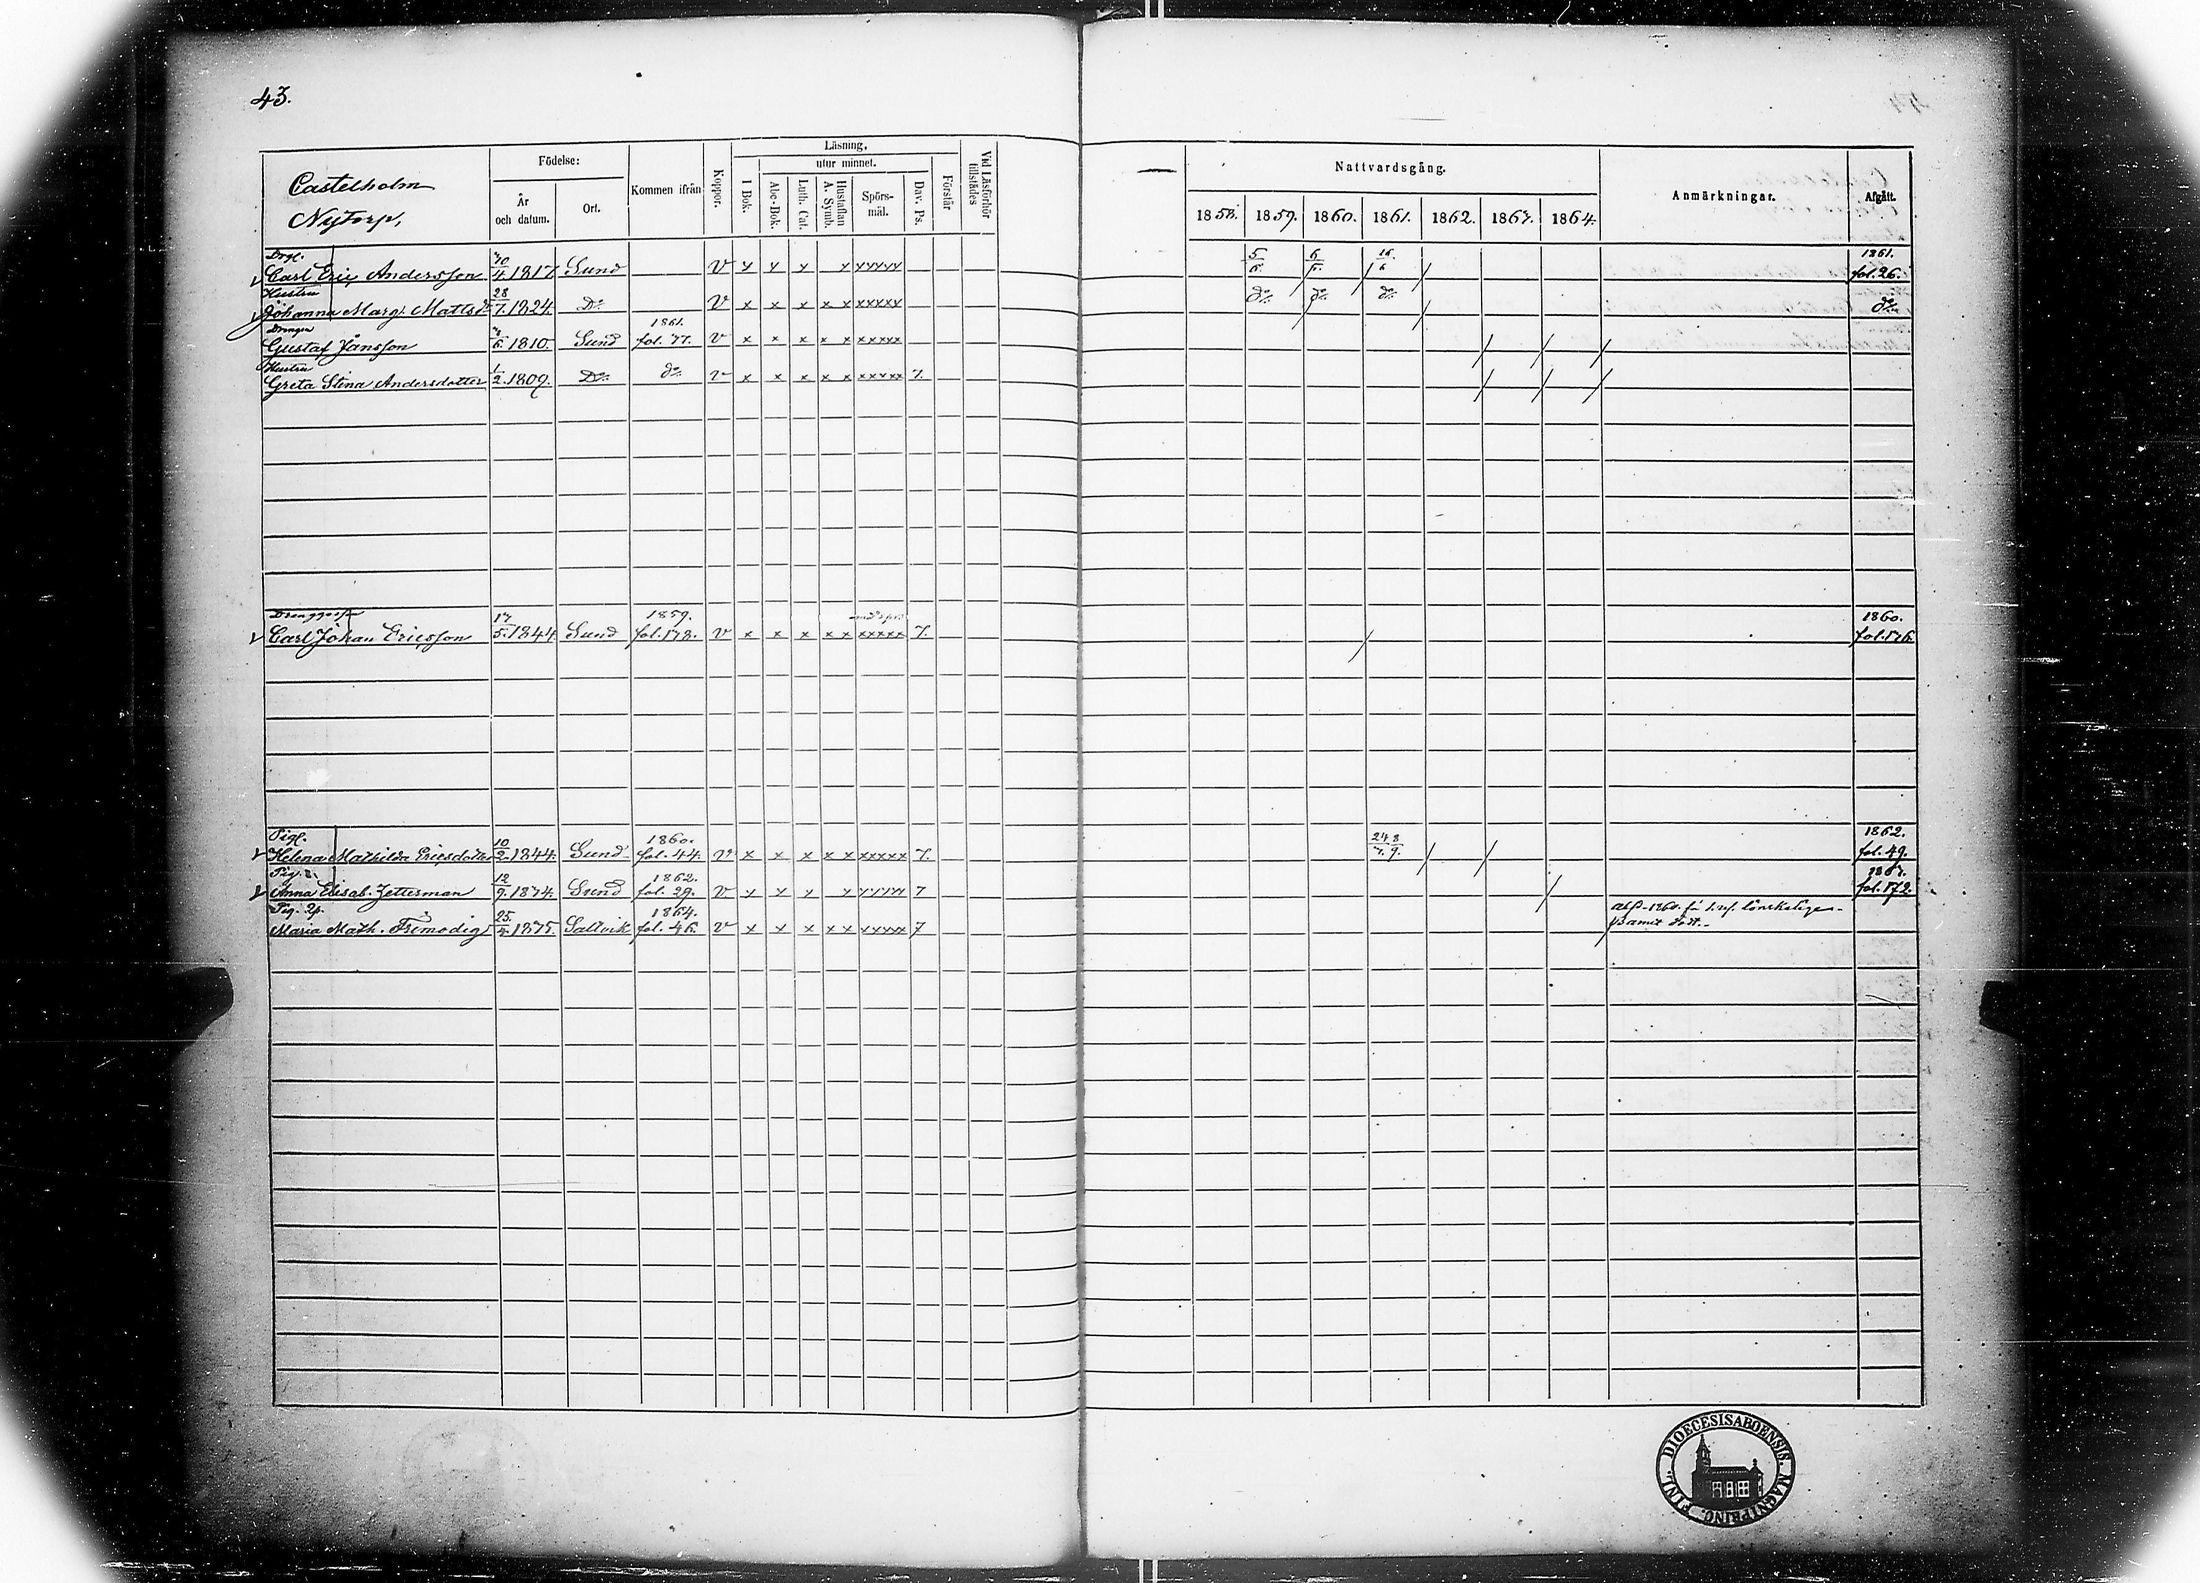 43.
Castelholm
Nytorp,
Födelse:
År och datum.
Ort.
Kommen ifrån
Koppor.
Läsning,
utur minnet.
I Bok.
Abc-Bok.
Luth. Cat.
Hustaflan A. Symb.
Spörs-mål.
Dav. Ps.
Förstår
Vid Läsförhör tillstädes
Nattvardsgång.
1858. 1859. 1860. 1861. 1862. 1863. 1864.
Anmärkningar.
Afgått.
Carl Eric Andersson 4. 1817 Sund v y y y y yyyyy 5/6. 6/5. 16/6 1861. fol. 26.
Hustru
Johanna Marg. Mattsd 28/7. 1824. Do v x x x x x xxxxx do do do do
Drengen
Gustaf Jansson 6. 1810. Sund 1861. fol. 77. v x x x x x xxxxx
Hustru
Greta Stina Andersdotter 1/2. 1809. Do do v x x x x x xxxxx 7.
Carl Johan Ericsson 17/5. 1844. Sund 1859. fol. 178. v x x x x x xxxxx 7. 1860. fol. 176.
Pigl.
Helena Mathilda Ericsdotter 10/2. 1844. Sund 1860. fol. 44. v x x x x x xxxxx 7. 24/7. 8/9. 1862. fol. 49.
Anna Elisab. Zetterman 12/9. 1834. Sund 1862. fol. 29. v y y y y yyyyy 7 fol. 172.
Maria Math. Frimodig 25. 1835. Saltvik 1864. fol. 46. v x x x x x xxxxx 7
FINL. DIOECESIS ABOENSIS. MAGNI PRINC.